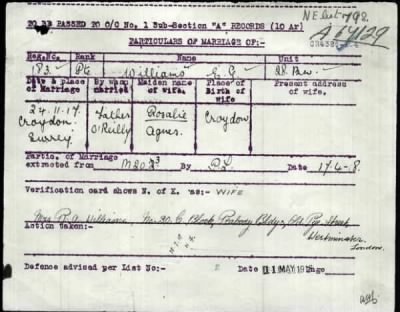 TO BE PASSED TO O/C No. 1 Sub-Section "A" RECORDS (10 Ar)
PARTICULARS OF MARRIAGE OF:-
Reg.No. Rank Name Unit
183. Pte Williams E. G.
Date & place of Marriage By whom married Maiden name of wife. Place of Birth of wife Present address of wife.
24-11-17. Croydon Surrey Father O'Reilly Rosalie Agnes. Croydon
Partic. of Marriage
extracted from M2023 By 17-4-8.
Verification card shows N. of K. as:- WIFE
Mrs R. A. Williams, No. 20. C Block, Peabody Bldgs, Old Pye Street,
Westminster
London.
Action taken:-
Defence advised per List No:- 11 MAY 1918